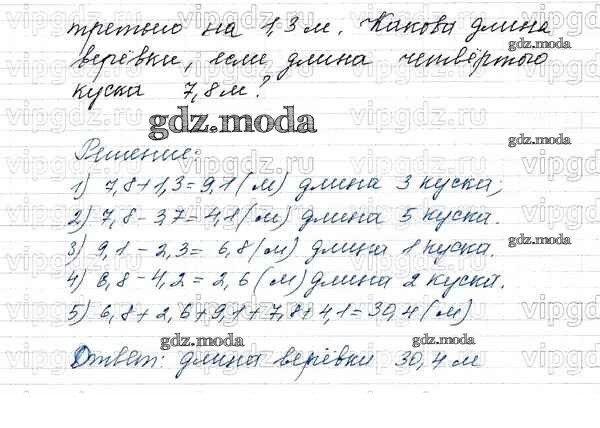 третьего на 1,3 м. Какова длина
верёвки, если длина четвёртого
куска 7,8 м?
gdz.moda
Решение:
1) 7,8+1,3=9,1(м) длина 3 куска;
2) 7,8-3,7=4,1(м) длина 5 куска.
3) 9,1-2,3=6,8(м) длина 1 куска.
4) 6,8-4,2=2,6(м) длина 2 куска.
5) 6,8+2,6+9,1+7,8+4,1=30,4(м)
Ответ: длина верёвки 30,4 м